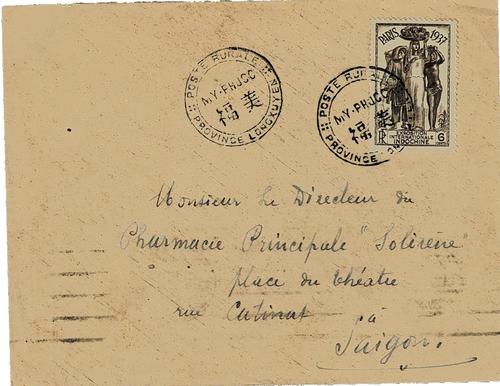 POSTE RURALE
MY-PHUOC
美
福
PROVINCE LONGXUYEN
POSTE RURALE
MY-PHUOC
福
PROVINCE
PARIS 1937
EXPOSITION
INTERNATIONALE
INDOCHINE
RF
6
CENTS
Monsieur Le Directeur du
Pharmacie Principale "Solirène"
place du théatre
rue Catinat à
Saigon.